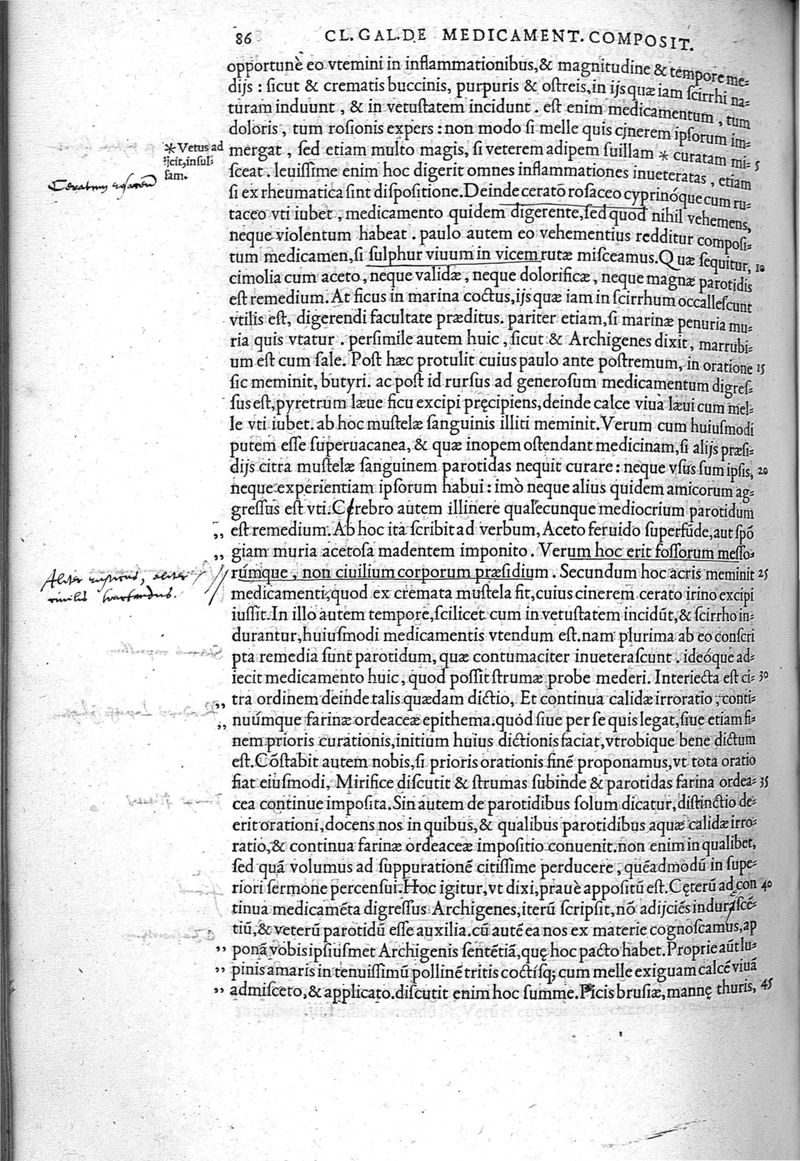 86 CL. GAL. DE MEDICAMENT. COMPOSIT.
opportunè eo vtemini in inflammationibus, & magnitudine & tempore me-
dijs : ſicut & crematis buccinis, purpuris & oſtreis, in ijs quæ iam ſcirrhi na-
turam induunt , & in vetuſtatem incidunt . eſt enim medicamentum , tum
doloris , tum roſionis expers : non modo ſi melle quis cinerem ipſorum im-
* Vetus ad
ijcit, inſul
ſam.
mergat , ſed etiam multo magis, ſi veterem adipem ſuillam * curatam mi- 5
ſceat . leuiſſime enim hoc digerit omnes inflammationes inueteratas , etiam
ſi ex rheumatica ſint diſpoſitione. Deinde cerato roſaceo cyprinóque cum ru-
taceo vti iubet , medicamento quidem digerente, ſed quod nihil vehemens,
neque violentum habeat . paulo autem eo vehementius redditur compoſi-
tum medicamen, ſi ſulphur viuum in vicem rutæ miſceamus. Quæ ſequitur, 10
cimolia cum aceto , neque validæ , neque dolorificæ , neque magnæ parotidis
eſt remedium. At ficus in marina coctus, ijs quæ iam in ſcirrhum occalleſcunt
vtilis eſt, digerendi facultate præditus. pariter etiam, ſi marinæ penuria mu-
ria quis vtatur . perſimile autem huic , ſicut & Archigenes dixit , marrubi-
um eſt cum ſale. Poſt hæc protulit cuius paulo ante poſtremum, in oratione 15
ſic meminit, butyri. ac poſt id rurſus ad generoſum medicamentum digreſ-
ſus eſt, pyretrum læue ficu excipi pręcipiens, deinde calce viua læui cum mel-
le vti iubet. ab hoc muſtelæ ſanguinis illiti meminit. Verum cum huiuſmodi
putem eſſe ſuperuacanea, & quæ inopem oſtendant medicinam, ſi alijs præſi-
dijs citra muſtelæ ſanguinem parotidas nequit curare : neque vſus ſum ipſis, 20
neque experientiam ipſorum habui : imò neque alius quidem amicorum ag-
greſſus eſt vti. Cerebro autem illinere qualecunque mediocrium parotidum
„ eſt remedium. Ab hoc ita ſcribit ad verbum, Aceto feruido ſuperfūde, aut ſpō
„ giam muria acetoſa madentem imponito . Verum hoc erit foſſorum meſſo-
Aliter
rúmque , non ciuilium corporum præſidium . Secundum hoc acris meminit 25
medicamenti, quod ex cremata muſtela fit, cuius cinerem cerato irino excipi
iuſſit. In illo autem tempore, ſcilicet cum in vetuſtatem incidūt, & ſcirrho in-
durantur, huiuſmodi medicamentis vtendum eſt. nam plurima ab eo conſcri
pta remedia ſunt parotidum, quæ contumaciter inueteraſcunt . ideóque ad-
iecit medicamento huic , quod poſſit ſtrumæ probe mederi. Interiecta eſt ci- 30
„ tra ordinem deinde talis quædam dictio, Et continua calidæ irroratio , conti-
„ nuúmque farinæ ordeaceæ epithema. quód ſiue per ſe quis legat, ſiue etiam fi-
nem prioris curationis, initium huius dictionis faciat, vtrobique bene dictum
eſt. Cōſtabit autem nobis, ſi prioris orationis finē proponamus, vt tota oratio
fiat eiuſmodi, Mirifice diſcutit & ſtrumas ſubinde & parotidas farina ordea- 35
cea continue impoſita. Sin autem de parotidibus ſolum dicatur, diſtinctio de-
erit orationi, docens nos in quibus, & qualibus parotidibus aquæ calidæ irro-
ratio, & continua farinæ ordeaceæ impoſitio conuenit. non enim in qualibet,
ſed quā volumus ad ſuppurationē citiſſime perducere , quēadmodū in ſupe-
riori ſermone percenſui. Hoc igitur, vt dixi, prauè appoſitū eſt. Cęterū ad con 40
tinua medicamēta digreſſus Archigenes, iterū ſcripſit, nō adijciēs induraſcē-
tiū, & veterū parotidū eſſe auxilia. cū autē ea nos ex materie cognoſcamus, ap
„ ponā vobis ipſiuſmet Archigenis ſentētiā, quę hoc pacto habet. Proprie aūt lu-
„ pinis amaris in tenuiſſimū pollinē tritis coctiſq; cum melle exiguam calcē viuā
„ admiſceto, & applicato. diſcutit enim hoc ſumme. Picis brusiæ, mannę thuris, 45